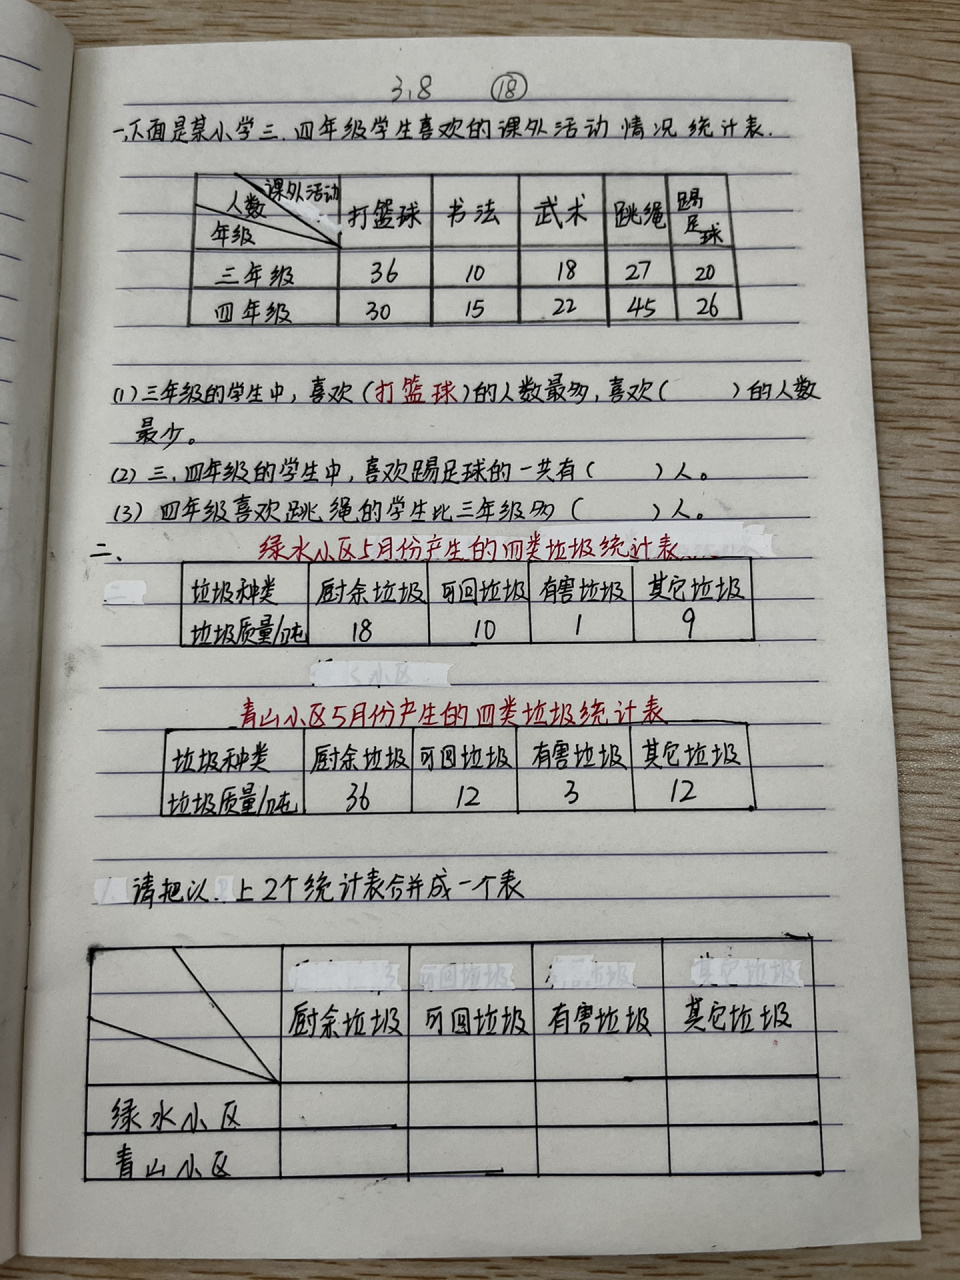 3.8 ⑱
一、下面是某小学三、四年级学生喜欢的课外活动情况统计表.
课外活动 人数 年级 打篮球 书法 武术 跳绳 踢足球
三年级 36 10 18 27 20
四年级 30 15 22 45 26
(1) 三年级的学生中,喜欢(打篮球)的人数最多,喜欢( )的人数
最少。
(2) 三、四年级的学生中,喜欢踢足球的一共有( )人。
(3) 四年级喜欢跳绳的学生比三年级多( )人。
二、 绿水小区5月份产生的四类垃圾统计表
垃圾种类 厨余垃圾 可回垃圾 有害垃圾 其它垃圾
垃圾质量/吨 18 10 1 9
青山小区5月份产生的四类垃圾统计表
垃圾种类 厨余垃圾 可回垃圾 有害垃圾 其它垃圾
垃圾质量/吨 36 12 3 12
请把以上2个统计表合并成一个表
厨余垃圾 可回垃圾 有害垃圾 其它垃圾
绿水小区
青山小区